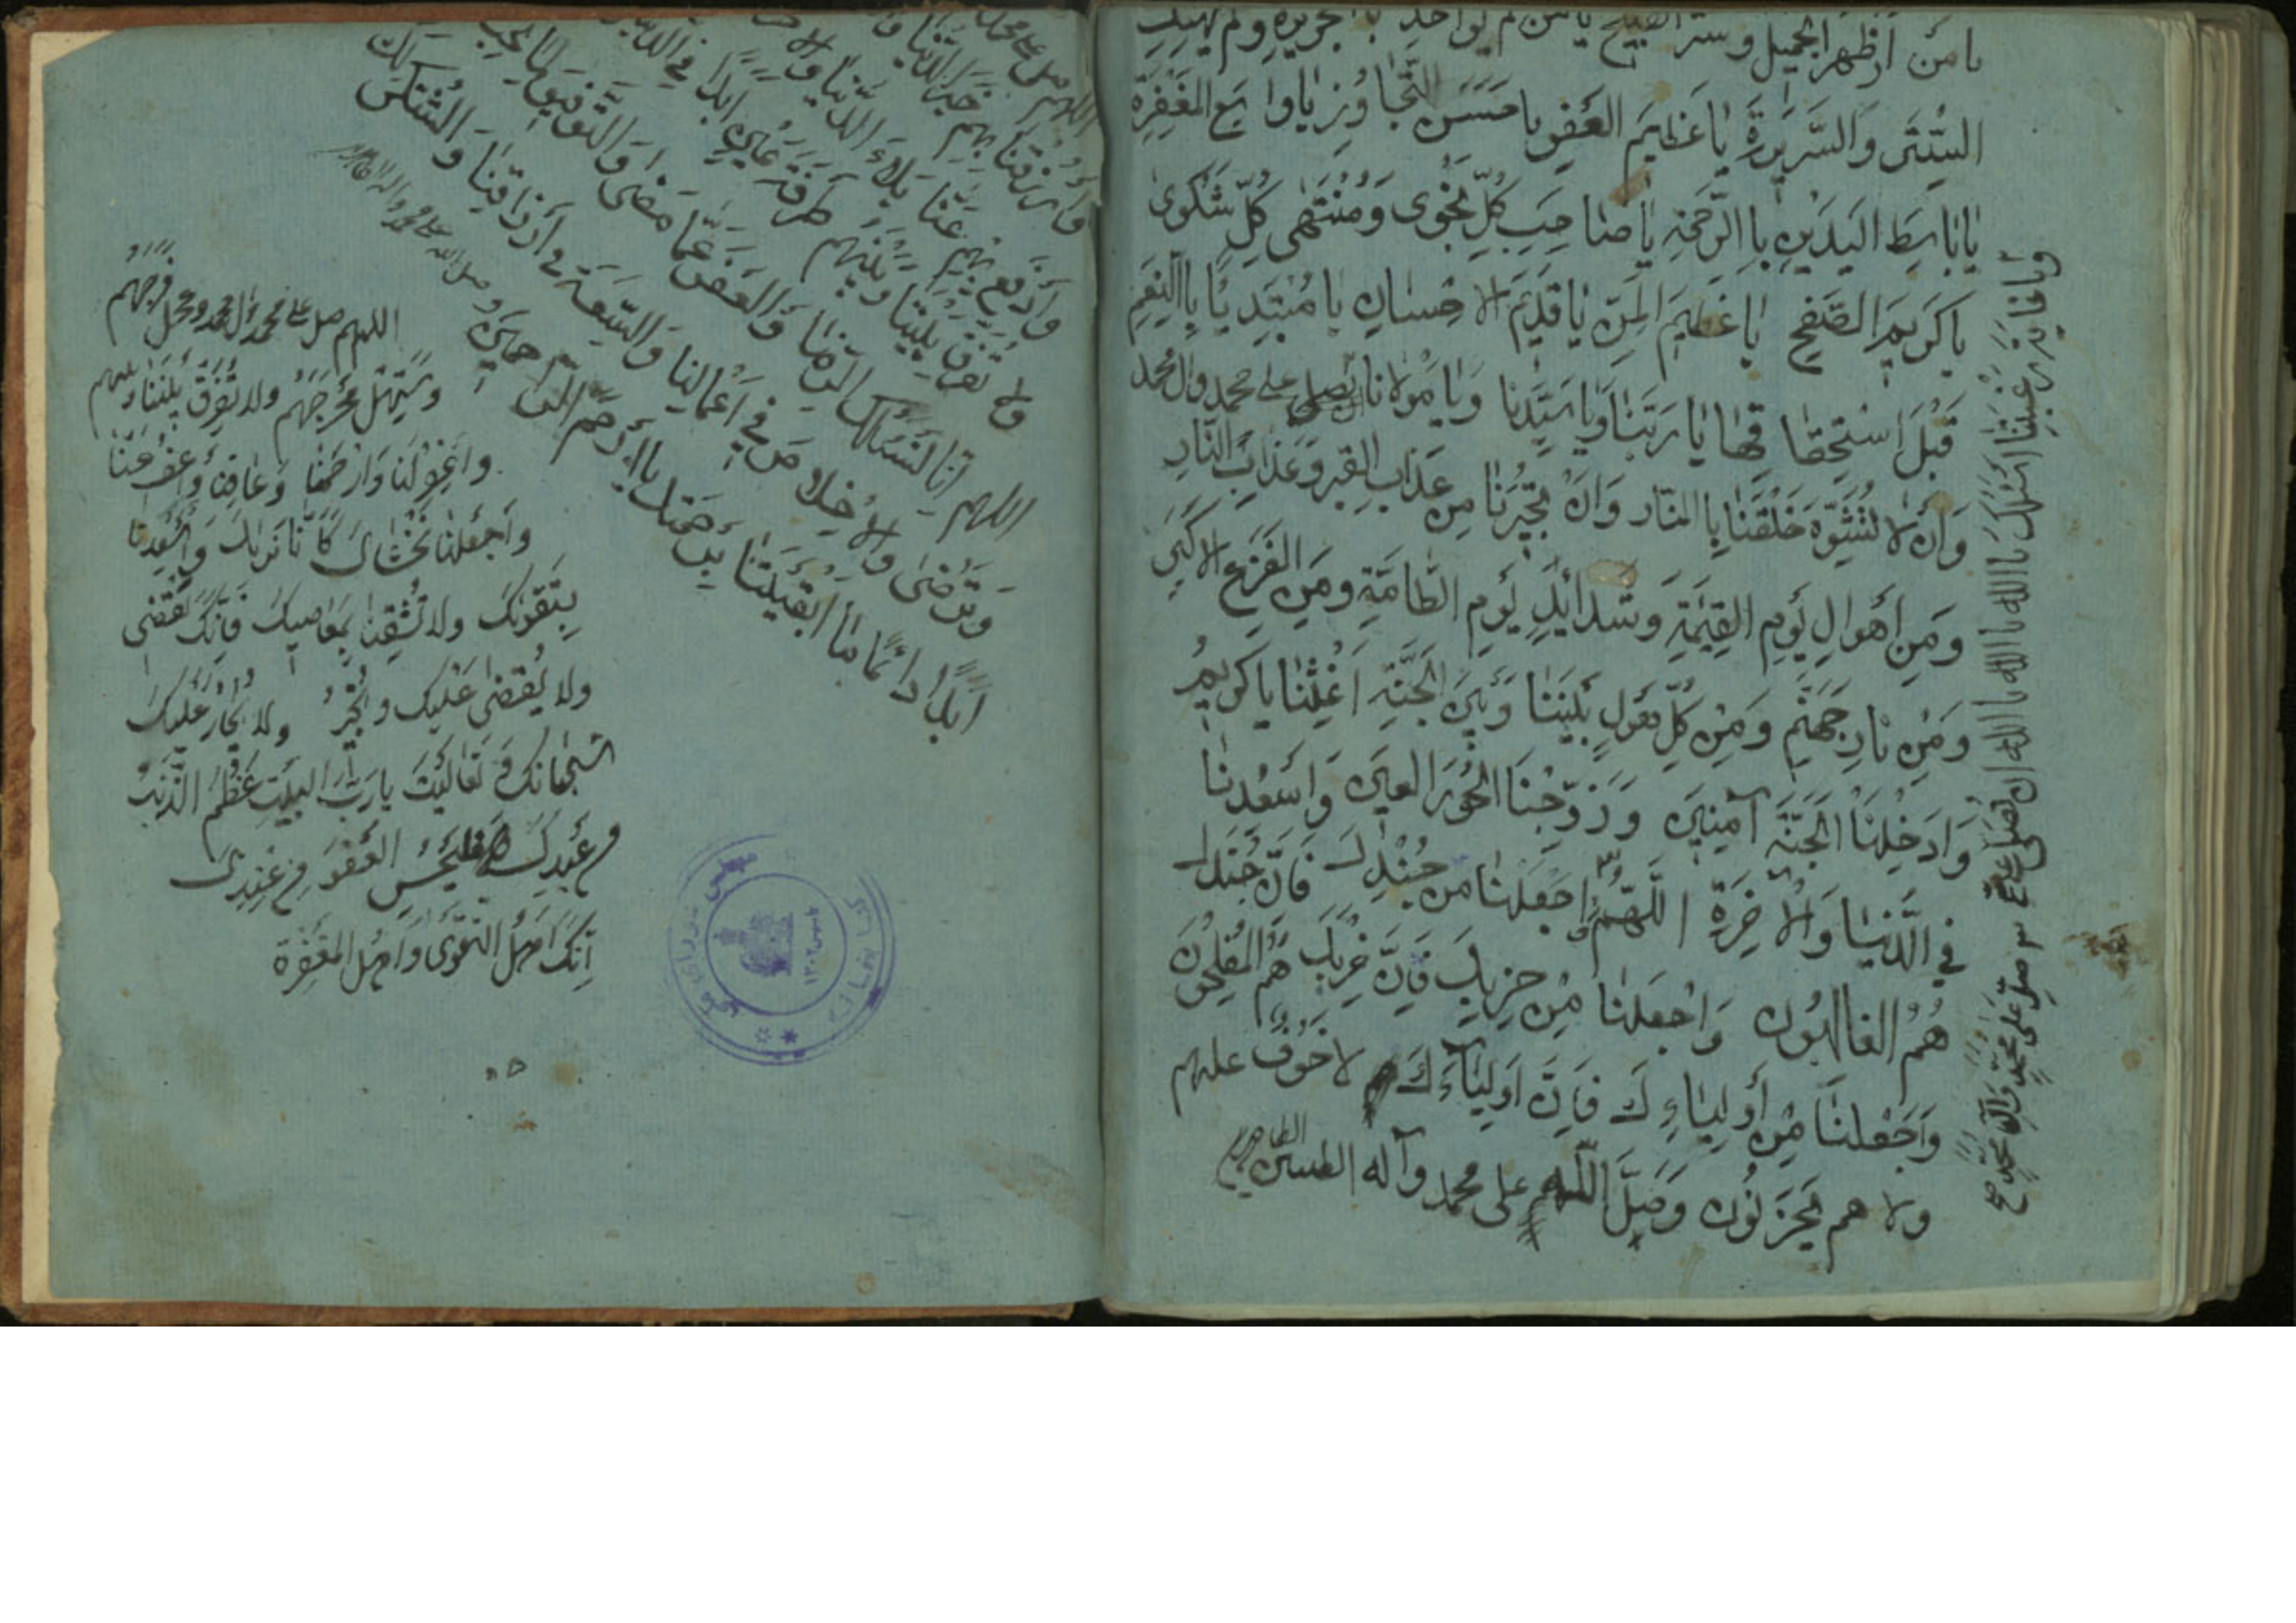 يا من أظهر الجميل وستر القبيح يا من لم يؤاخذ بالجريرة ولم يهتك
السِّتْرَ وَالسَّرِيرَةَ يا عَظيمَ العَفوِ يا حَسَنَ التَّجاوُزِ يا واسِعَ المَغفِرَةِ
يا باسِطَ اليَدَينِ بِالرَّحمَةِ يا صاحِبَ كُلِّ نَجوى وَمُنتَهى كُلِّ شَكوى
يا كَريمَ الصَّفحِ يا عَظيمَ المَنِّ يا قَديمَ الاحسانِ يا مُبتَدِيًا بِالنِّعَمِ
قَبلَ استِحقاقِها يا رَبَّنا وَيا سَيِّدَنا وَيا مَولانا ان تصلي على محمد وال محمد
وَان لا تُشَوِّهَ خَلقَنا بِالنّار وَان تُجيرَنا مِن عَذابِ القبر وَعَذابِ النّارِ
وَمِن أهوالِ يَومِ القِيمَةِ وَشدائدِ يَومِ الطّامَّةِ ومِن الفَزَعِ الاكبَرِ
وَمِن نارِ جَهَنَّمَ وَمِن كُلِّ بَينَنا وَبَينَ الجَنَّةِ أَغِثنا يا كَريمُ
وَادخِلنَا الجَنَّةَ آمِنينَ وَزَوِّجنَا الحُورَ العينَ وَاسعُدنا
في الدُّنيا وَالآخِرَةِ اللَّهُمَّ اجعَلنا من جُندِكَ فَإنَّ جُندَكَ
هُمُ الغالِبُونَ وَاجعَلنا مِن حِزبِكَ فَإنَّ حِزبَكَ هُمُ المُفلِحُونَ
وَاجعَلنا مِن أَولِياءِكَ فَإنَّ اَولِياءَكَ لا خَوفٌ عليهم
ولا هم يَحزَنُونَ وَصَلَّ اللهم على محمد وآله الطيبين الطاهرين
وَيا غايَةَ رَغبَتِنا أسئَلُكَ يا الله يا الله يا الله ان تصلي على
صلِّ عَلى مُحَمَّدٍ وَآلِ مُحَمَّدٍ
اللهم صل على محمد
وَارزُقنا بِهِم خَيرَ الدُّنيا
وَادفَع بِهِم عَنّا بَلاءَ الدُّنيا والا
ولا تُفَرِّق بَينَنا وبَينَهُم طَرفَةَ عَينٍ أبَدًا في الد
اللهم إنّا نَسئَلُكَ الرِّضا وَالعَفوَ عَمّا مَضى وَالتَّوفيقَ لِما تُحِبُّ
وَتَرضى والاخلاصَ في أعمالِنا وَالسَّعَةَ في أرزاقِنا وَالشُّكرَ لَكَ
أبَدًا دائِمًا ما أبقَيتَنا بِرَحمَتِكَ يا أرحم الراحمين وصلى الله على محمد واله الطاهرين
اللهم صل على محمد وال محمد وعجل فَرَجَهُم
وَسَهِّل مَخرَجَهُم ولا تُفَرِّق بَينَنا وبينهم
واغفِر لَنا وَارحَمنا وَعافِنا وَاعفُ عَنّا
واجعَلنا نَخشاكَ كَأَنّا نَراكَ وَاسعِدنا
بِتَقوٰىكَ ولا تُشقِنا بِمَعاصيكَ فَإنَّكَ تَقضي
ولا يُقضى عَلَيكَ وتُجيرُ ولا يُجارُ عَلَيكَ
سُبحانَكَ وَتَعالَيتَ يا رَبَّ البَيتِ عَظُمَ الذَّنبُ
مِن عَبدِكَ فَليَحسُنِ العَفوُ مِن عِندِكَ
إنَّكَ أهلُ التَّقوى وَأهلُ المَغفِرَة